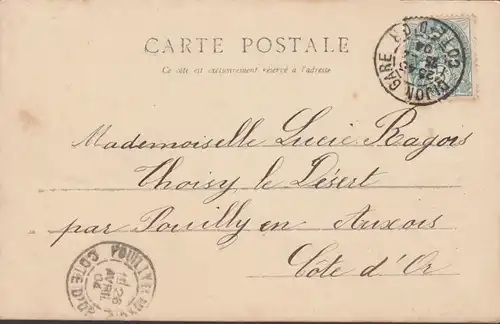 CARTE POSTALE
Ce côté est exclusivement réservé à l'adresse
DIJON GARE
COTE-D'OR
Mademoiselle Lucie Ragois
Thoisy le Désert
par Pouilly en Auxois
Côte d'Or
POUILLY-EN-AUXOIS
26
AVRIL
04
COTE D'OR